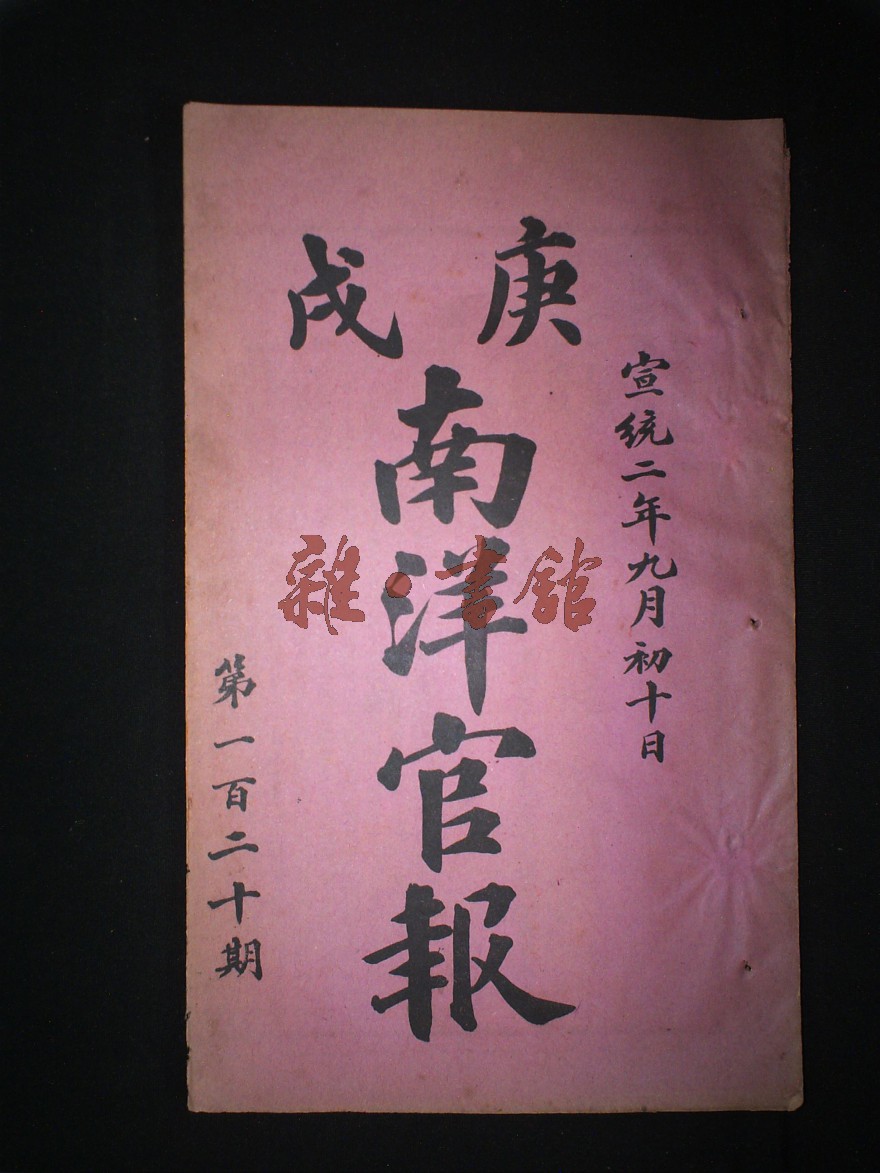 庚戌
宣統二年九月初十日
南洋官報
第一百二十期
雜·書館